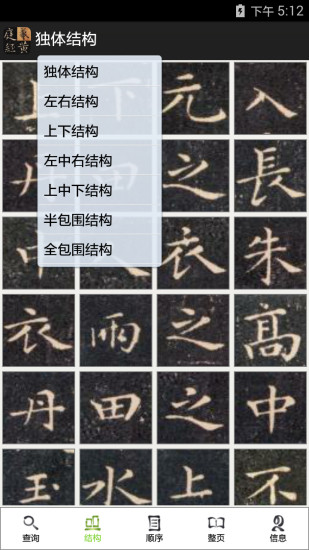 下午 5:12
庭黄經
独体结构
独体结构
左右结构
上下结构
左中右结构
上中下结构
半包围结构
全包围结构
上下元入
丹田之長
中人衣朱
衣兩之高
丹田之中
玉水上不
查询 结构 顺序 整页 信息